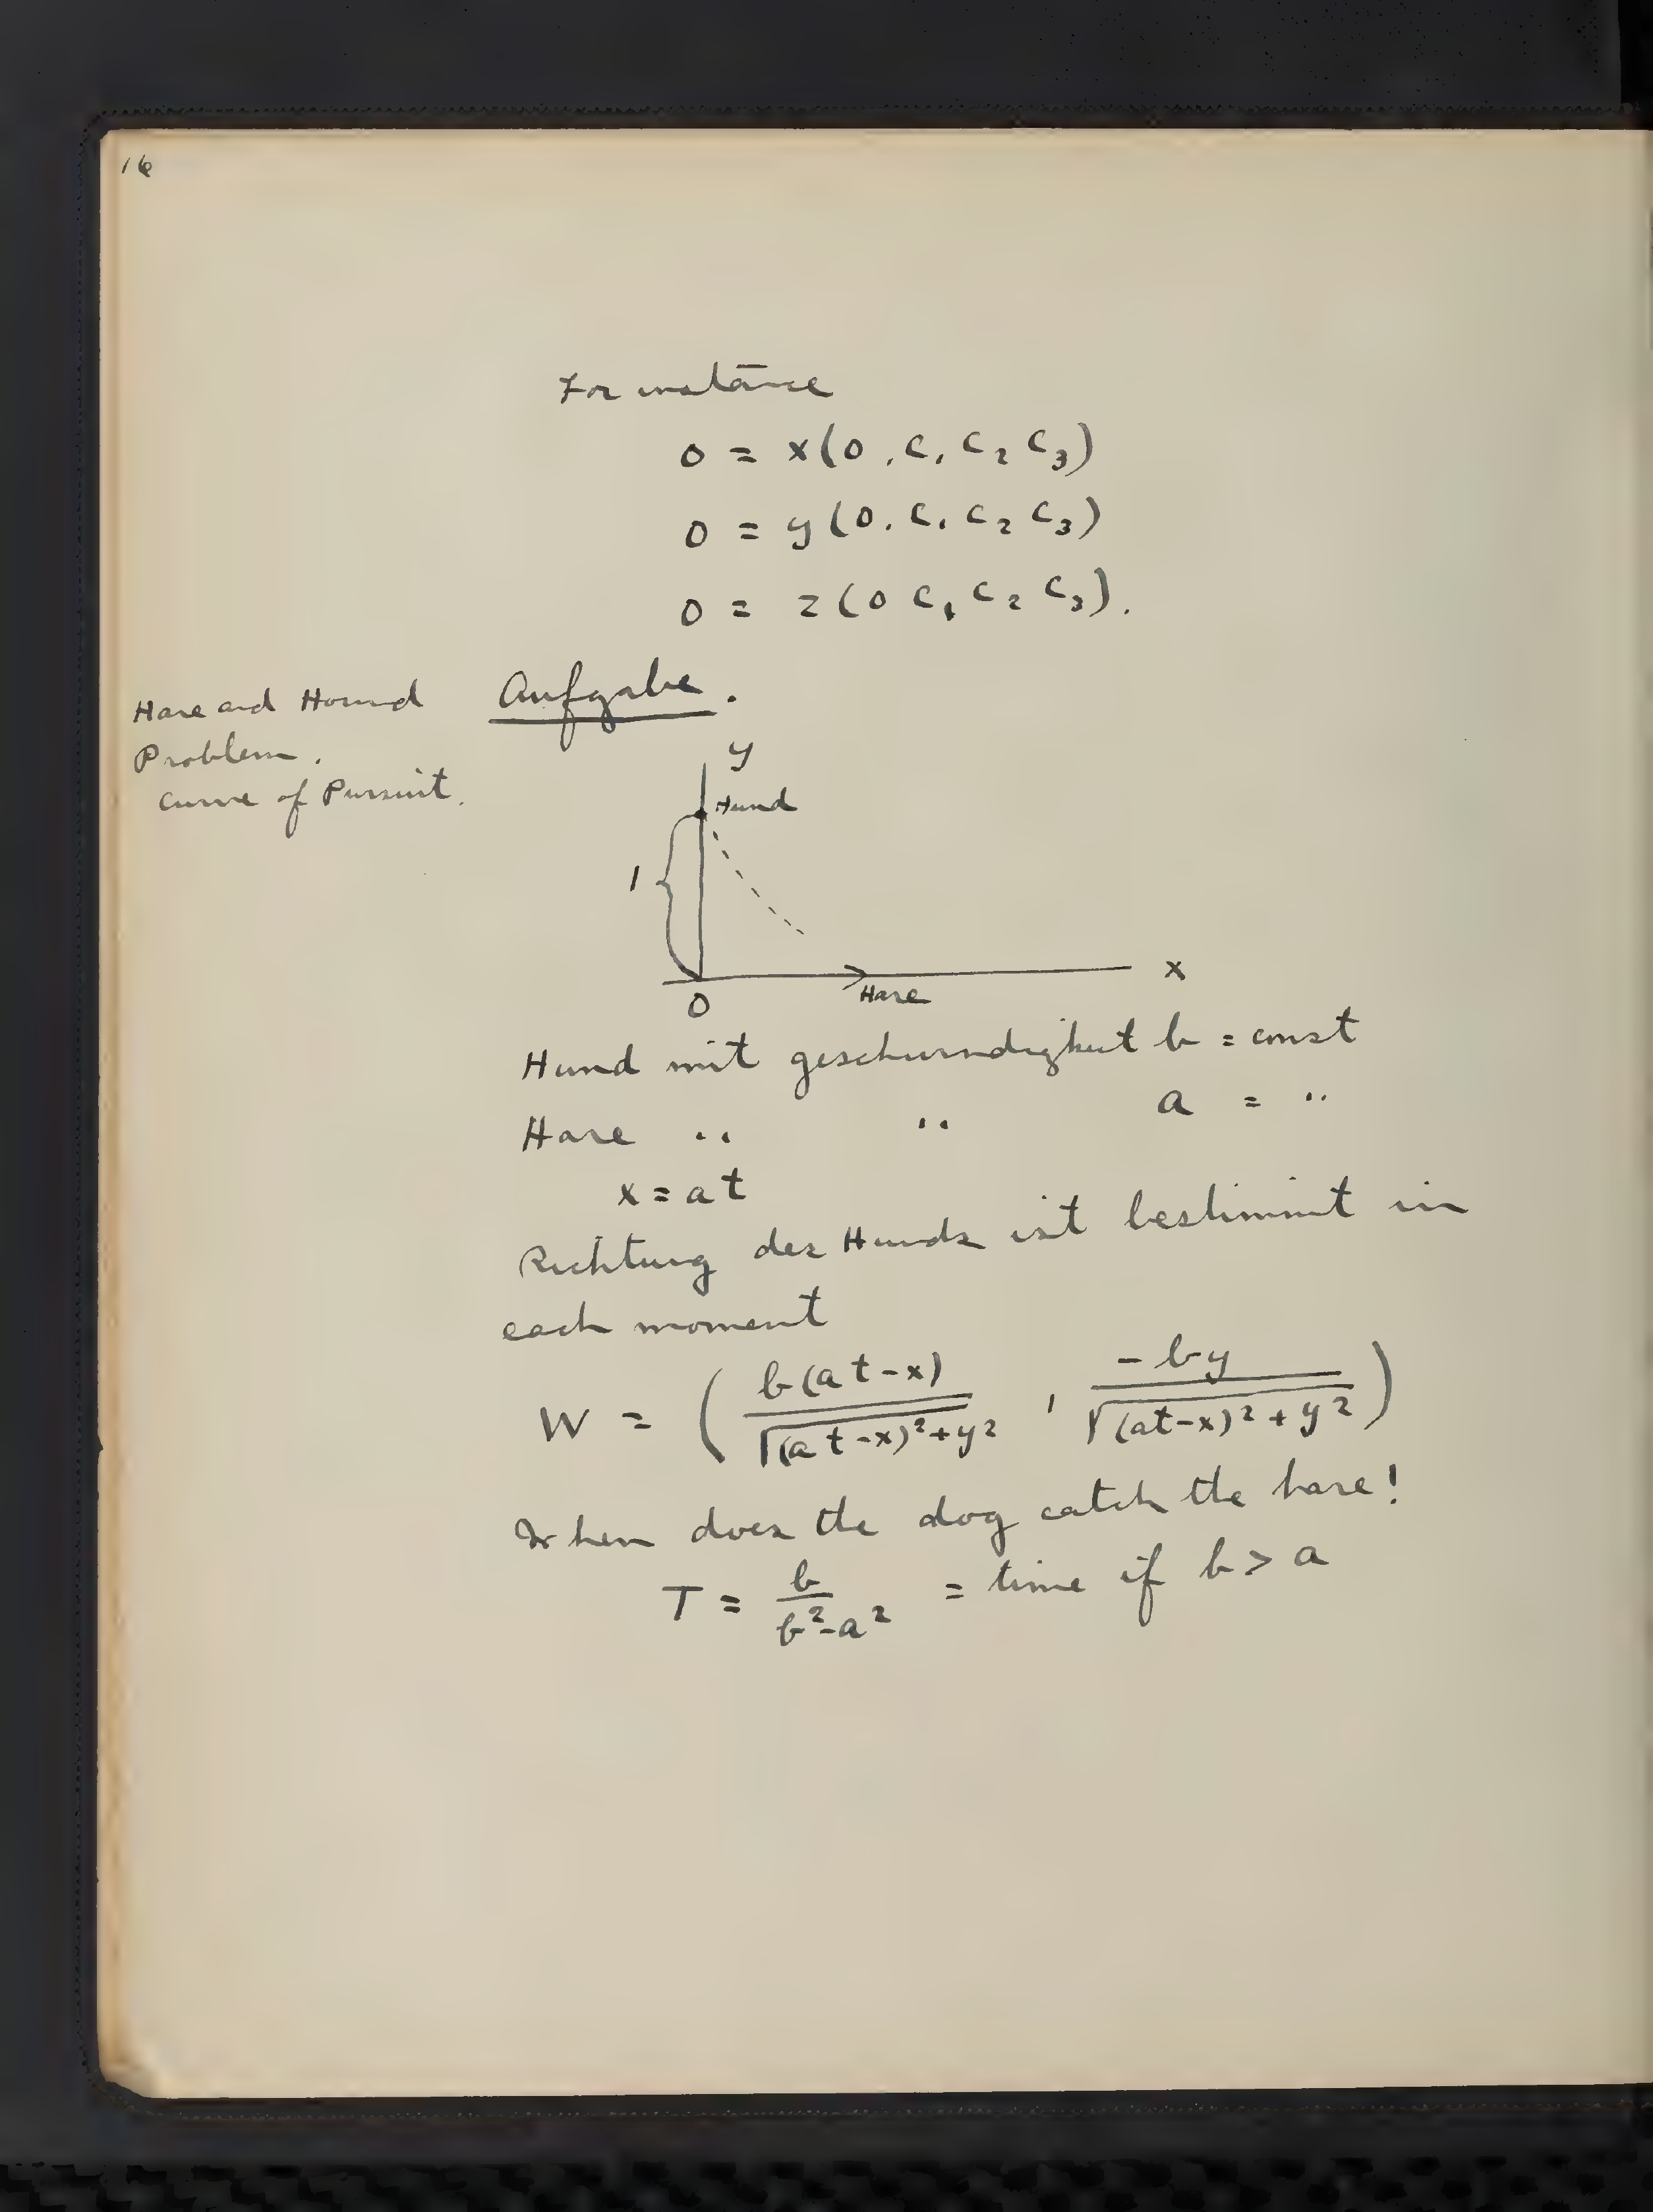 16
For instance
0 = x(0, c₁ c₂ c₃)
0 = y(0. c₁ c₂ c₃)
0 = z(0 c₁ c₂ c₃).
Hare and Hound
Problem.
Curve of Pursuit.
Aufgabe.
y
Hund
1
x
0
Hare
Hund mit geschwindigkeit b = const
Hare " " a = "
x = at
Richtung des Hunds ist bestimmt in
each moment
W = ( b(at-x) / √(at-x)²+y² , -by / √(at-x)²+y² )
When does the dog catch the hare!
T = b / b²-a² = time if b > a